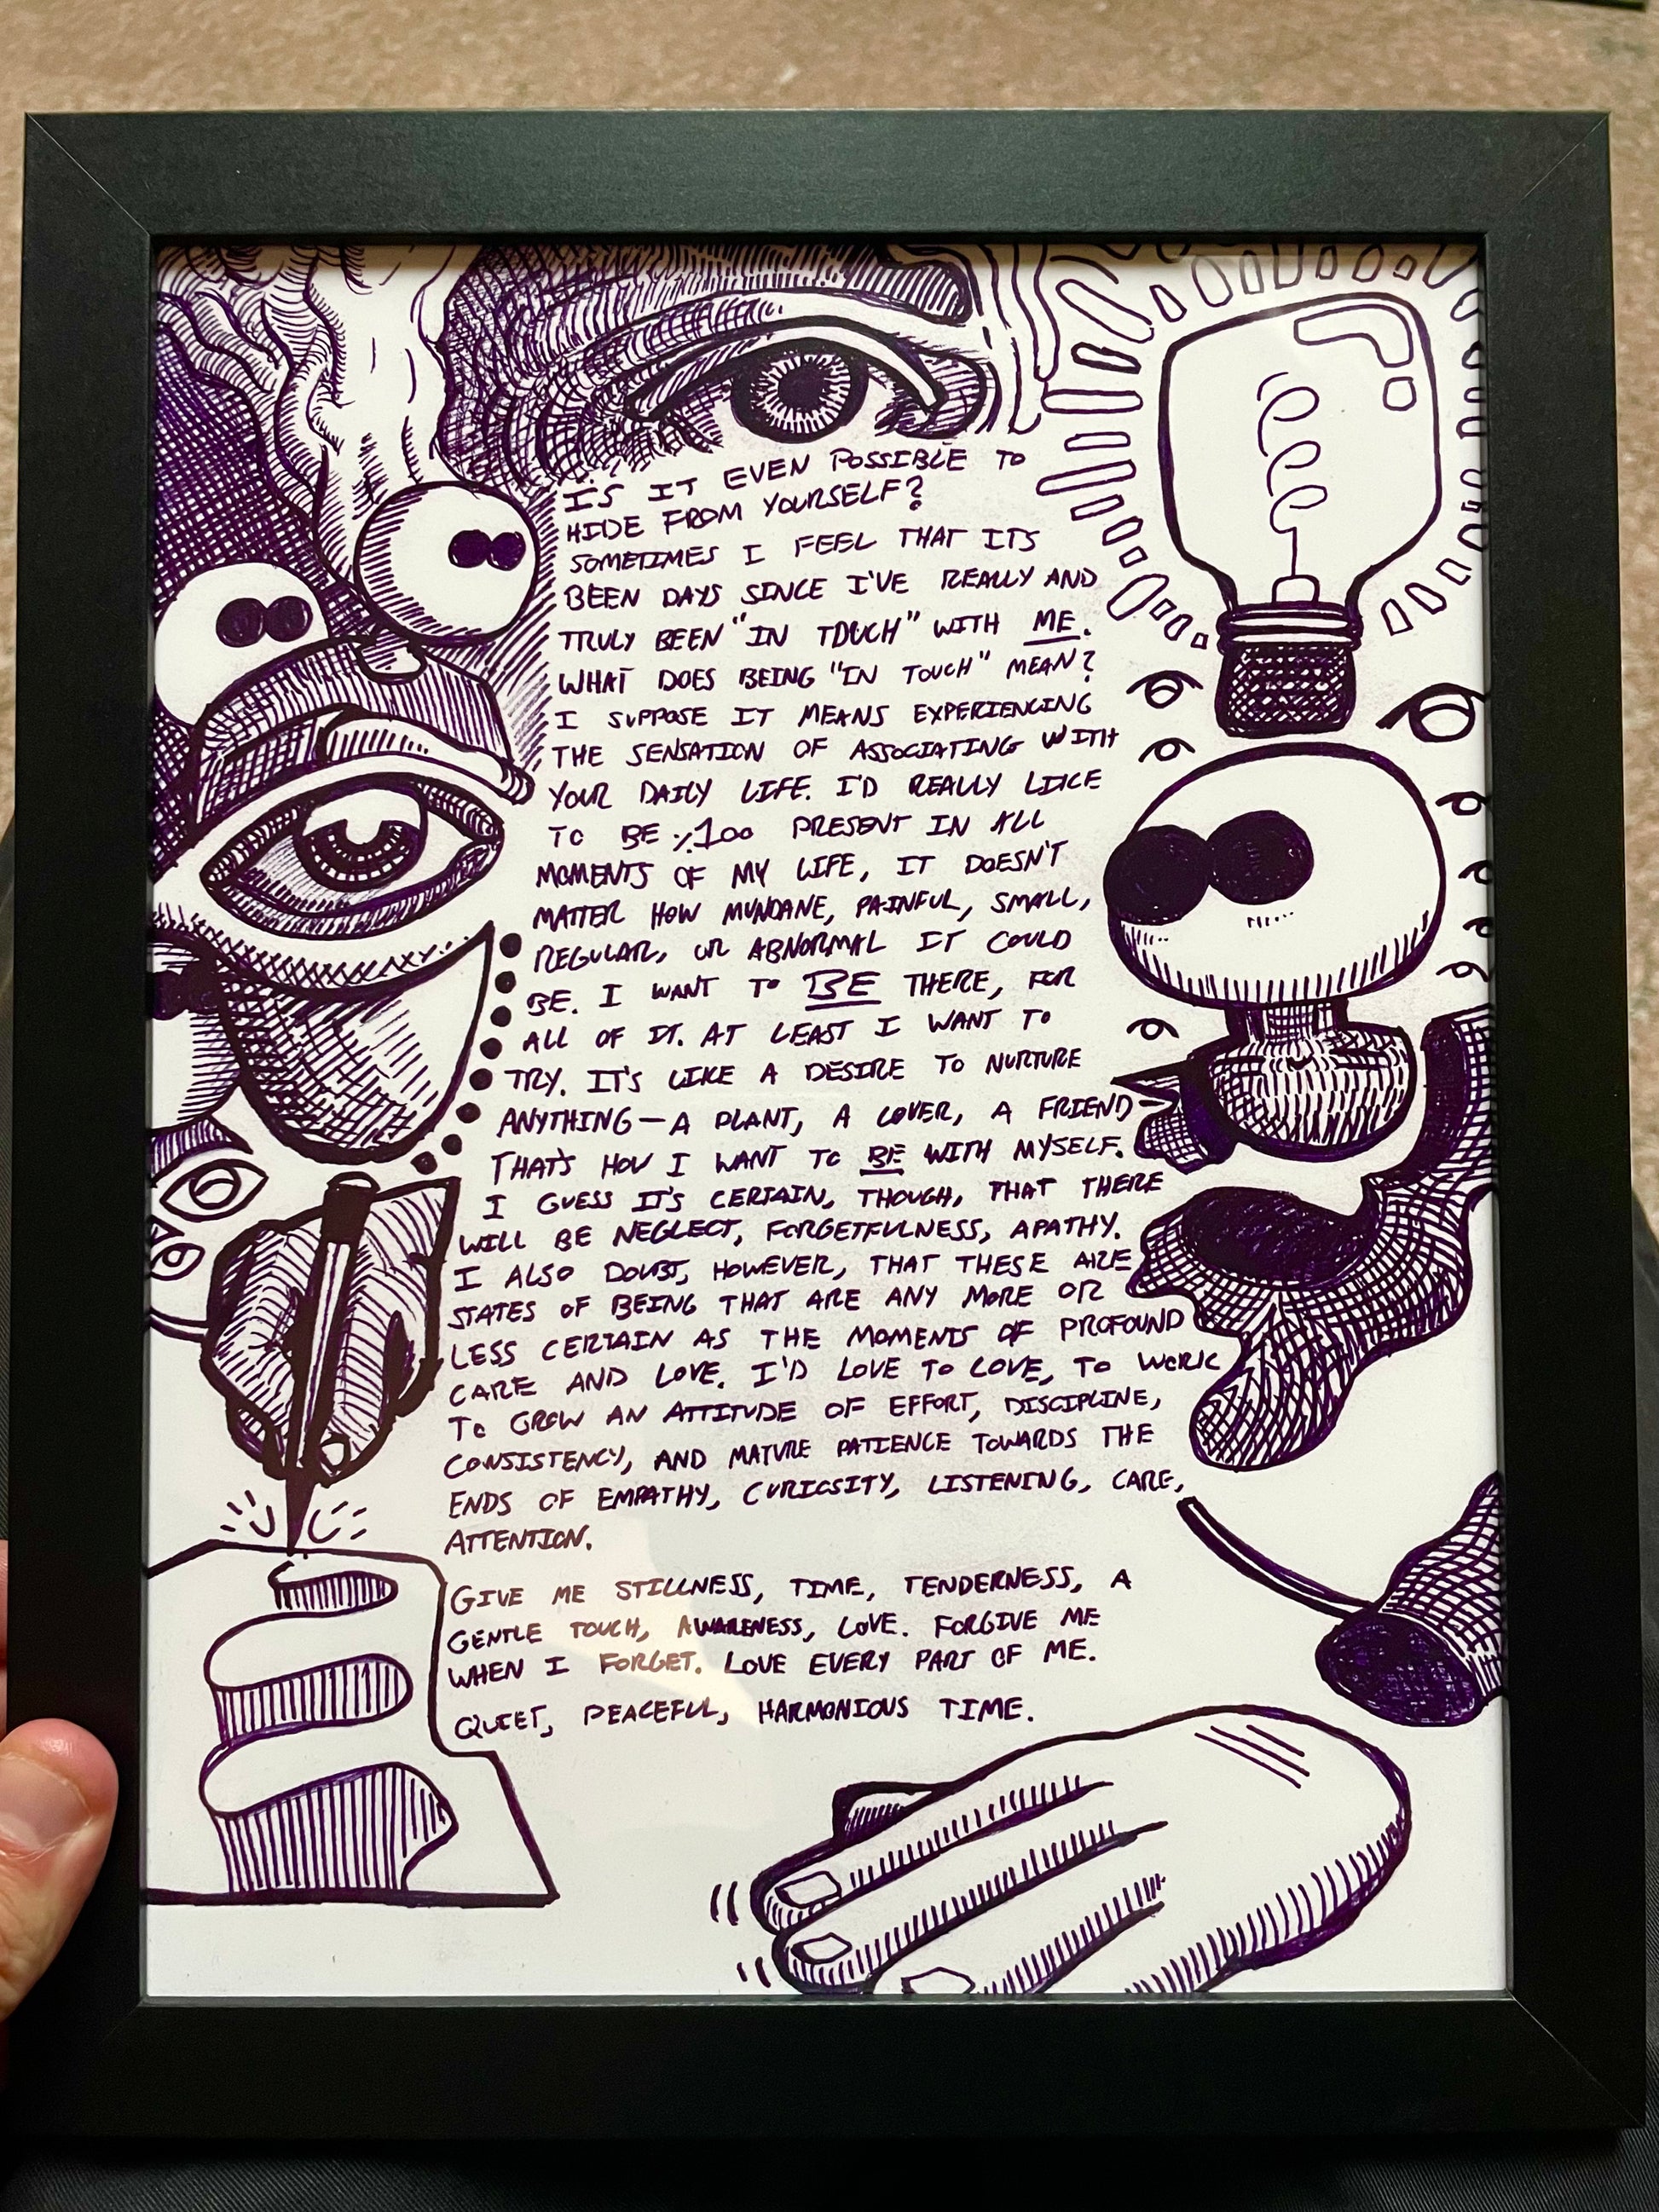 IS IT EVEN POSSIBLE TO
HIDE FROM YOURSELF?
SOMETIMES I FEEL THAT ITS
BEEN DAYS SINCE I'VE REALLY AND
TRULY BEEN "IN TOUCH" WITH ME.
WHAT DOES BEING "IN TOUCH" MEAN?
I SUPPOSE IT MEANS EXPERIENCING
THE SENSATION OF ASSOCIATING WITH
YOUR DAILY LIFE. I'D REALLY LIKE
TO BE %100 PRESENT IN ALL
MOMENTS OF MY LIFE, IT DOESN'T
MATTER HOW MUNDANE, PAINFUL, SMALL,
REGULAR, OR ABNORMAL IT COULD
BE. I WANT TO BE THERE, FOR
ALL OF IT. AT LEAST I WANT TO
TRY. IT'S LIKE A DESIRE TO NURTURE
ANYTHING—A PLANT, A LOVER, A FRIEND—
THAT'S HOW I WANT TO BE WITH MYSELF.
I GUESS IT'S CERTAIN, THOUGH, THAT THERE
WILL BE NEGLECT, FORGETFULNESS, APATHY.
I ALSO DOUBT, HOWEVER, THAT THESE ARE
STATES OF BEING THAT ARE ANY MORE OR
LESS CERTAIN AS THE MOMENTS OF PROFOUND
CARE AND LOVE. I'D LOVE TO LOVE, TO WORK
TO GROW AN ATTITUDE OF EFFORT, DISCIPLINE,
CONSISTENCY, AND MATURE PATIENCE TOWARDS THE
ENDS OF EMPATHY, CURIOSITY, LISTENING, CARE,
ATTENTION.
GIVE ME STILLNESS, TIME, TENDERNESS, A
GENTLE TOUCH, AWARENESS, LOVE. FORGIVE ME
WHEN I FORGET. LOVE EVERY PART OF ME.
QUIET, PEACEFUL, HARMONIOUS TIME.